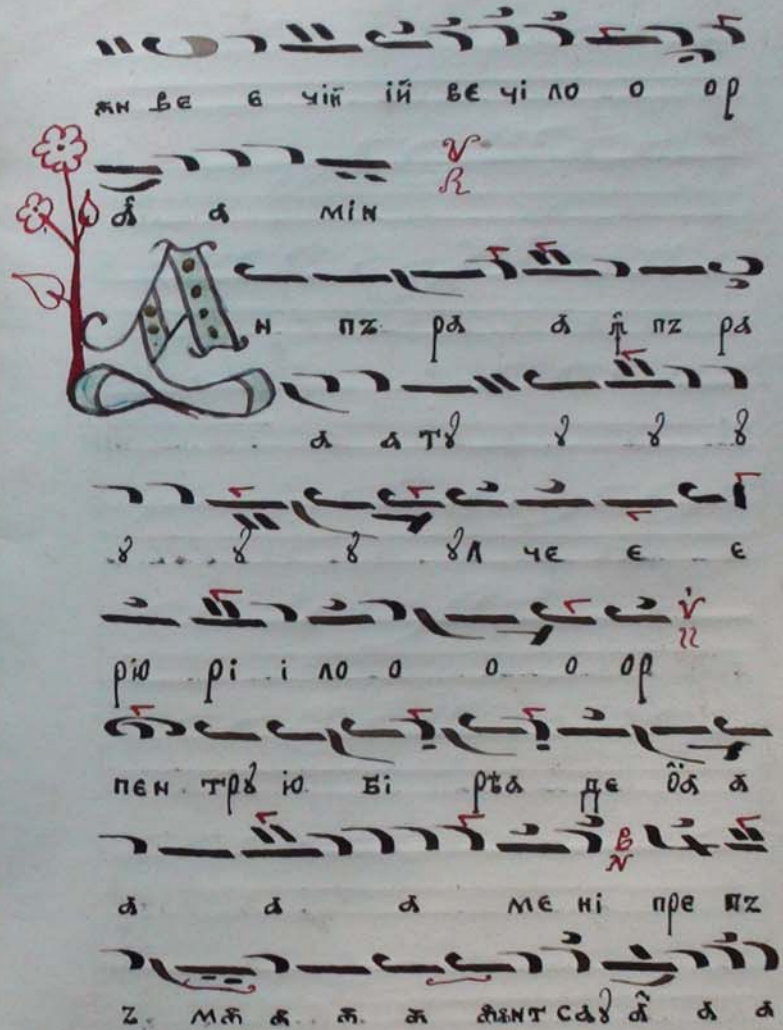 ѫн вє є чїй їй вє чі ло о ор
а҆̂ а мін
Ѫн пъ ра а пъ ра
а а тꙋ ꙋ ꙋ ꙋ
ꙋ ꙋ ꙋ ꙋл чє є є
рїю рі і ло о о о ор
пєн трꙋ ю бі рѣа дє ѻ҆а а
а а а мє ні прє пъ
ъ мѫ ѫ ѫ ѫ ѫнт саꙋ а҆̂ а а